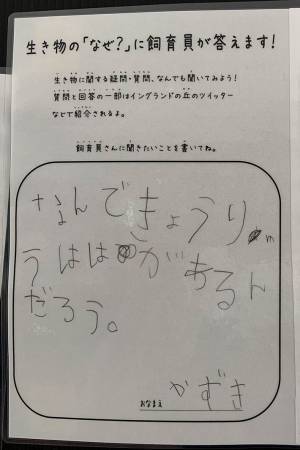 生き物の「なぜ?」に飼育員が答えます!
生き物に関する疑問・質問、なんでも聞いてみよう!
質問と回答の一部はイングランドの丘のツイッター
などで紹介されるよ。
飼育員さんに聞きたいことを書いてね。
なんできょうり
うははがあるん
だろう。
おなまえ かずき